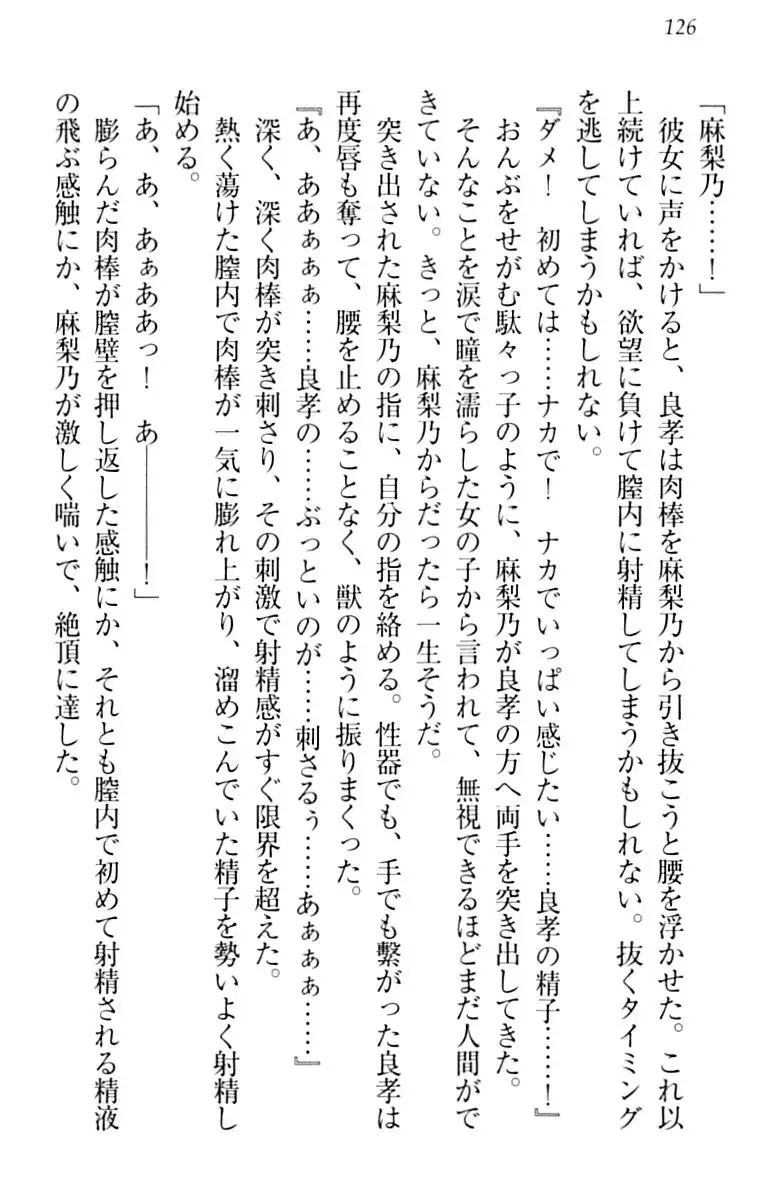 126
「麻梨乃……！」
　彼女に声をかけると、良孝は肉棒を麻梨乃から引き抜こうと腰を浮かせた。これ以
上続けていれば、欲望に負けて膣内に射精してしまうかもしれない。抜くタイミング
を逃してしまうかもしれない。
『ダメ！　初めては……ナカで！　ナカでいっぱい感じたい……良孝の精子……！』
　おんぶをせがむ駄々っ子のように、麻梨乃が良孝の方へ両手を突き出してきた。
　そんなことを涙で瞳を濡らした女の子から言われて、無視できるほどまだ人間がで
きていない。きっと、麻梨乃からだったら一生そうだ。
　突き出された麻梨乃の指に、自分の指を絡める。性器でも、手でも繋がった良孝は
再度唇も奪って、腰を止めることなく、獣のように振りまくった。
『あ、ああぁぁぁ……良孝の……ぶっといのが……刺さるぅ……あぁぁぁ……』
　深く、深く肉棒が突き刺さり、その刺激で射精感がすぐ限界を超えた。
　熱く蕩けた膣内で肉棒が一気に膨れ上がり、溜めこんでいた精子を勢いよく射精し
始める。
「あ、あ、あぁああっ！　あ――――！」
　膨らんだ肉棒が膣壁を押し返した感触にか、それとも膣内で初めて射精される精液
の飛ぶ感触にか、麻梨乃が激しく喘いで、絶頂に達した。